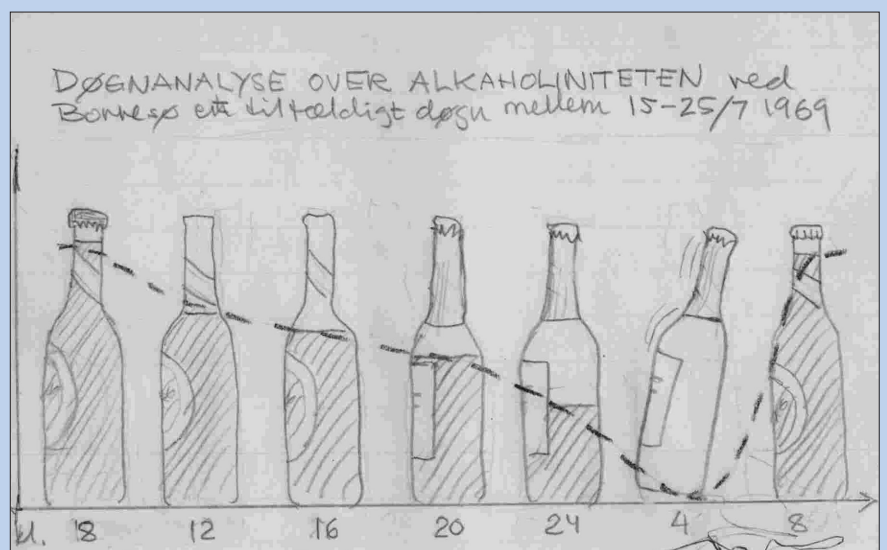 DØGNANALYSE OVER ALKAHOLINITETEN ved
Borresø et tilfældigt døgn mellem 15-25/7 1969
kl. 8 12 16 20 24 4 8